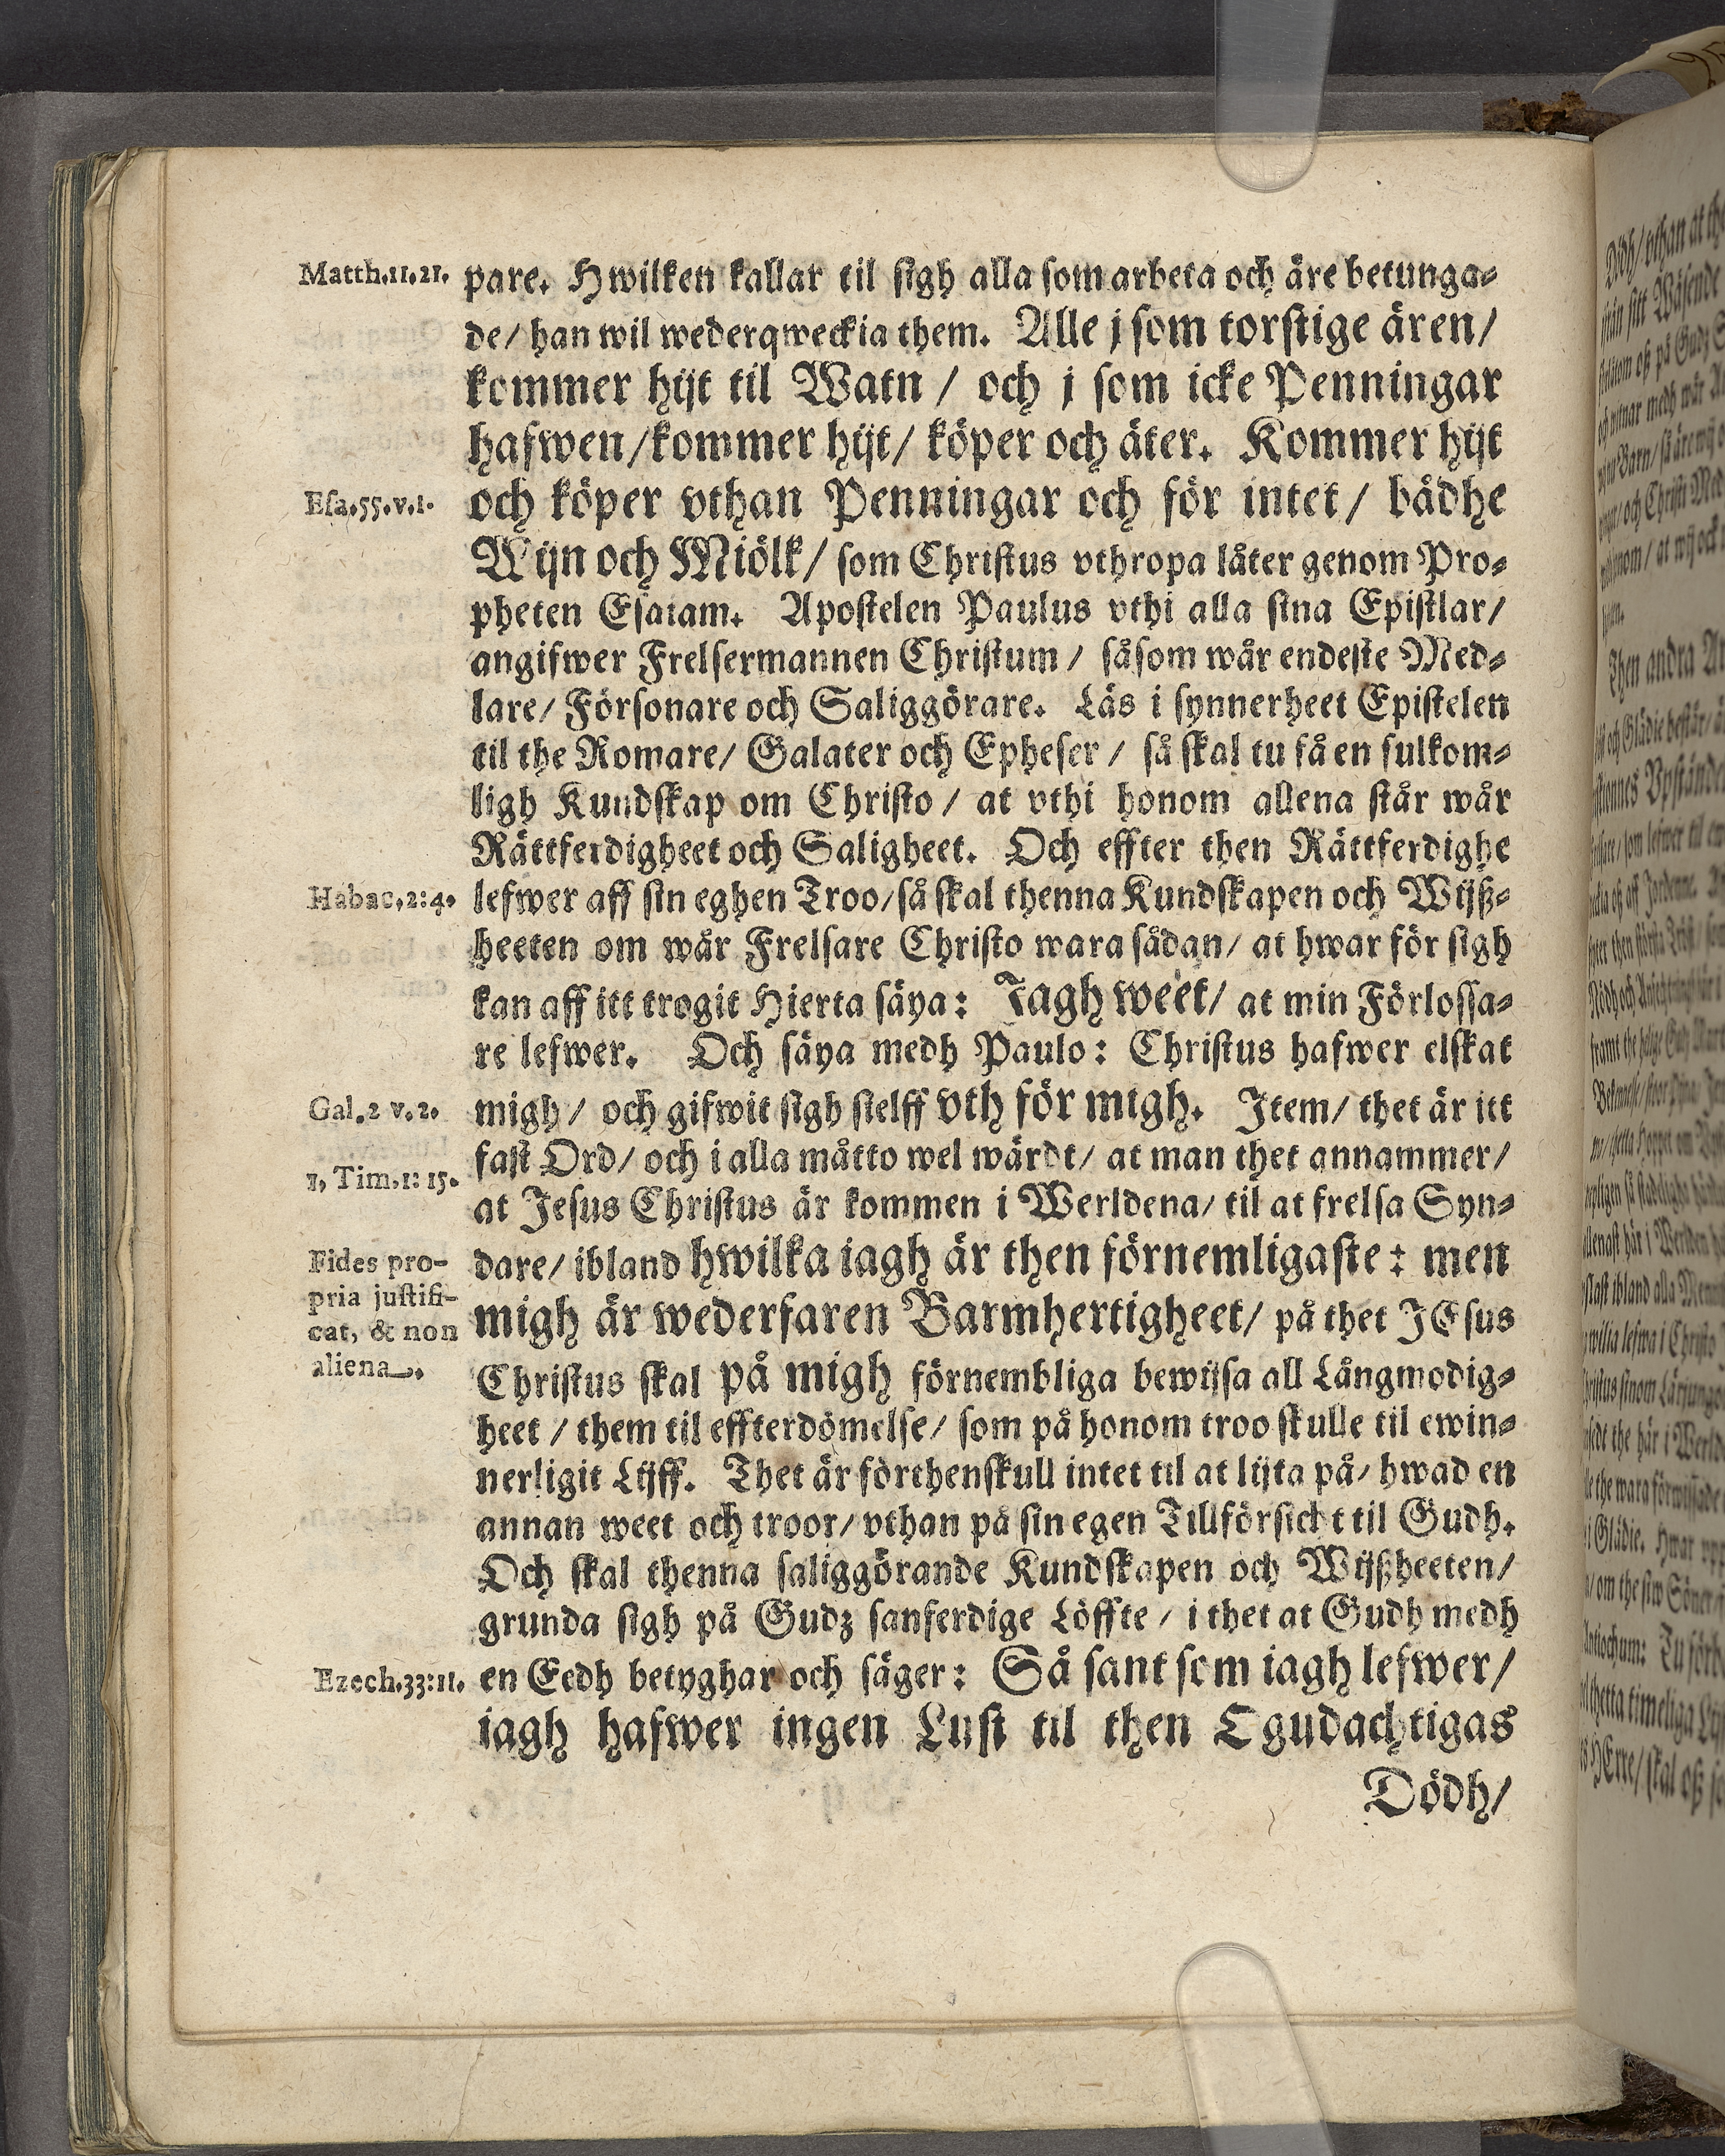 Matth.11.21.
pare. Hwilken kallar til sigh alla som arbeta och äre betunga-
de/ han wil wederqweckia them. Alle j som torstige ären/
kommer hijt til Watn / och j som icke Penningar
hafwen/kommer hijt/ köper och äter. Kommer hijt
Esa.55.v.1.
och köper vthan Penningar och för intet / bådhe
Wijn och Miölk/ som Christus vthropa låter genom Pro-
pheten Esaiam. Apostelen Paulus vthi alla sina Epistlar/
angifwer Frelsermannen Christum / såsom wår endeste Med-
lare/ Försonare och Saliggörare. Läs i synnerheet Epistelen
til the Romare/ Galater och Epheser / så skal tu få en fulkom-
ligh Kundskap om Christo / at vthi honom allena står wår
Rättferdigheet och Saligheet. Och effter then Rättferdighe
Habac.2:4.
lefwer aff sin eghen Troo/så skal thenna Kundskapen och Wijß-
heeten om wår Frelsare Christo wara sådan/ at hwar för sigh
kan aff itt trogit Hierta säya: Jagh weet/ at min Förlossa-
re lefwer. Och säya medh Paulo: Christus hafwer elskat
Gal.2 v.2.
migh / och gifwit sigh sielff vth för migh. Item/ thet är itt
fast Ord/ och i alla måtto wel wärdt/ at man thet annammer/
1, Tim.1: 15.
at Jesus Christus är kommen i Werldena/ til at frelsa Syn-
dare/ ibland hwilka iagh är then förnemligaste: men
migh är wederfaren Barmhertigheet/ på thet JEsus
Christus skal på migh förnembliga bewijsa all Långmodig-
Fides pro-
pria justifi-
cat, & non
aliena.
heet / them til effterdömelse/ som på honom troo skulle til ewin-
nerligit Lijff. Thet är förthenskull intet til at lijta på/ hwad en
annan weet och troor/ vthan på sin egen Tillförsicht til Gudh.
Och skal thenna saliggörande Kundskapen och Wijßheeten/
grunda sigh på Gudz sanferdige Löffte / i thet at Gudh medh
Ezech.33:11.
en Eedh betyghar och säger: Så sant som iagh lefwer/
iagh hafwer ingen Lust til then Ogudachtigas
Dödh/